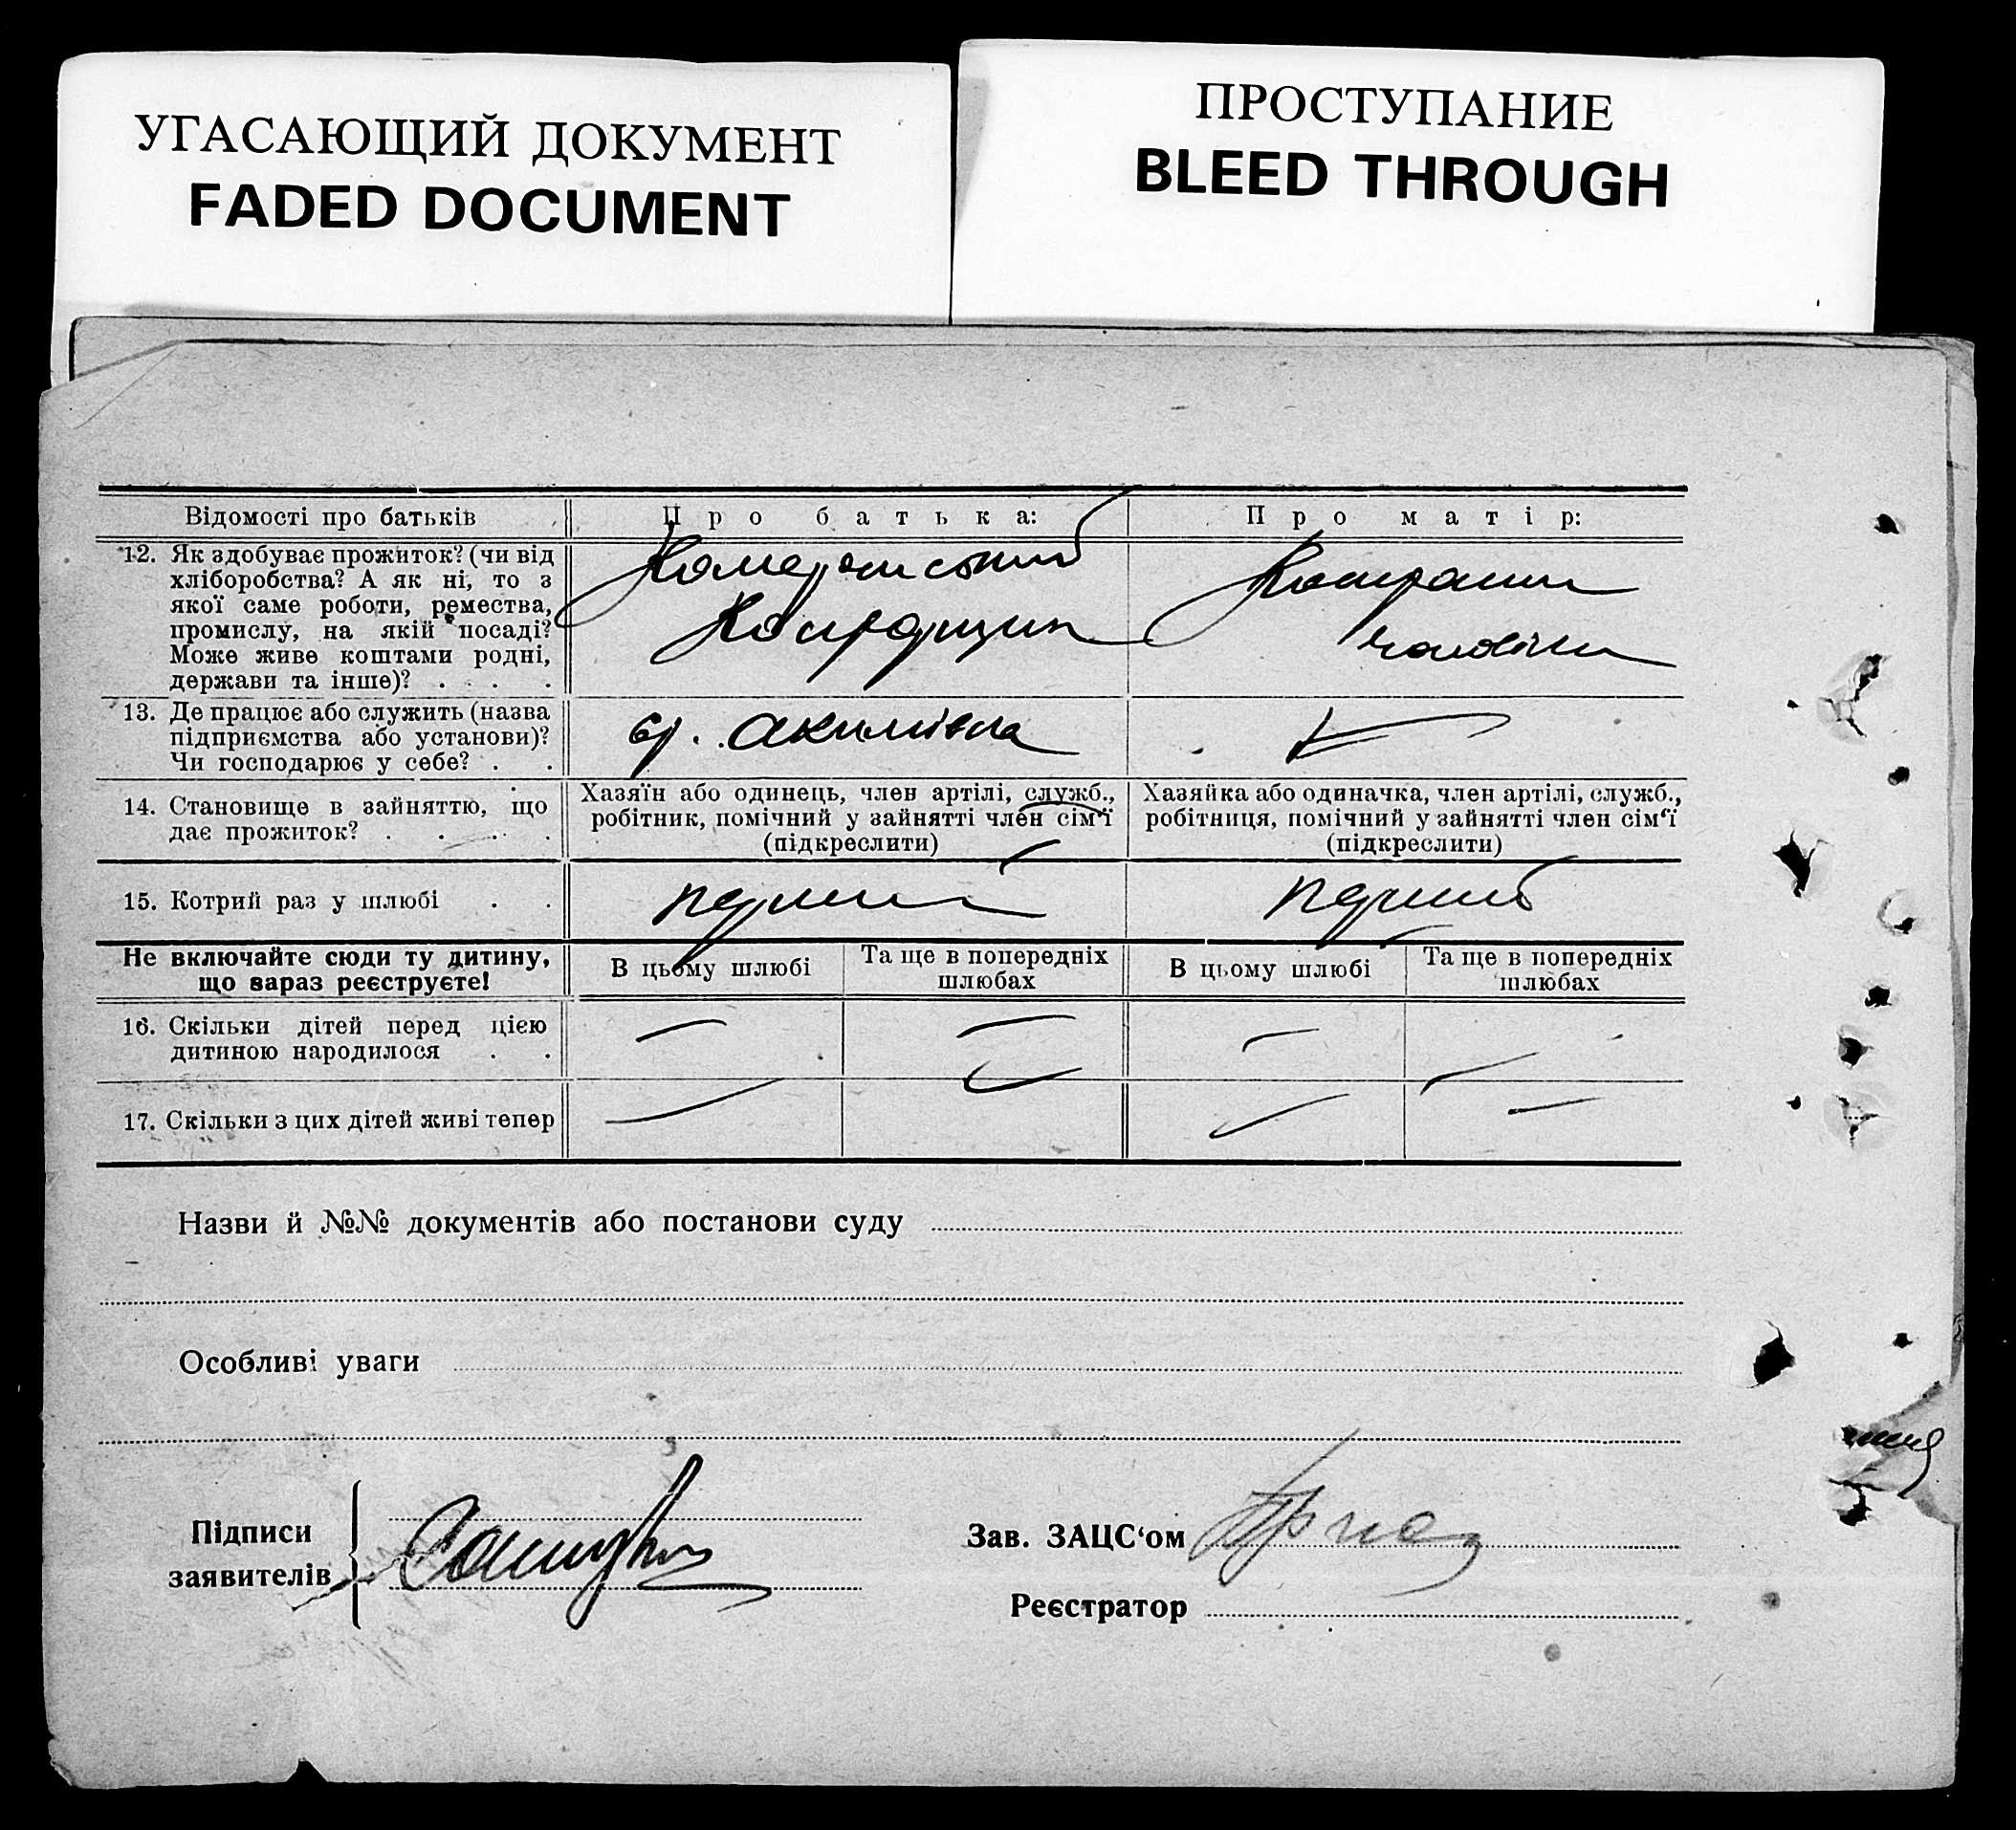 УГАСАЮЩИЙ ДОКУМЕНТ
FADED DOCUMENT
ПРОСТУПАНИЕ
BLEED THROUGH
Відомості про батьків
Про батька:
Про матір:
12. Як здобуває прожиток? (чи від
хліборобства? А як ні, то з
якої саме роботи, ремества,
промислу, на якій посаді?
Може живе коштами родні,
держави та інше)? . . .
Коштами
чоловіка
13. Де працює або служить (назва
підприємства або установи)?
Чи господарює у себе? . .
Акимівка
14. Становище в зайняттю, що
дає прожиток? . . . .
Хазяїн або одинець, член артілі, служб.,
робітник, помічний у зайнятті член сім‘ї
(підкреслити)
Хазяйка або одиначка, член артілі, служб.,
робітниця, помічний у зайнятті член сім‘ї
(підкреслити)
15. Котрий раз у шлюбі . .
перший
перший
Не включайте сюди ту дитину,
що зараз реєструєте!
В цьому шлюбі
Та ще в попередніх
шлюбах
В цьому шлюбі
Та ще в попередніх
шлюбах
16. Скільки дітей перед цією
дитиною народилося . .
— — — —
17. Скільки з цих дітей живі тепер
— — — —
Назви й №№ документів або постанови суду
Особливі уваги
Підписи
заявителів
Зав. ЗАЦС‘ом
Реєстратор